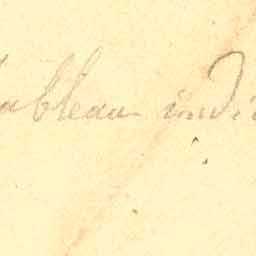 ableau indi